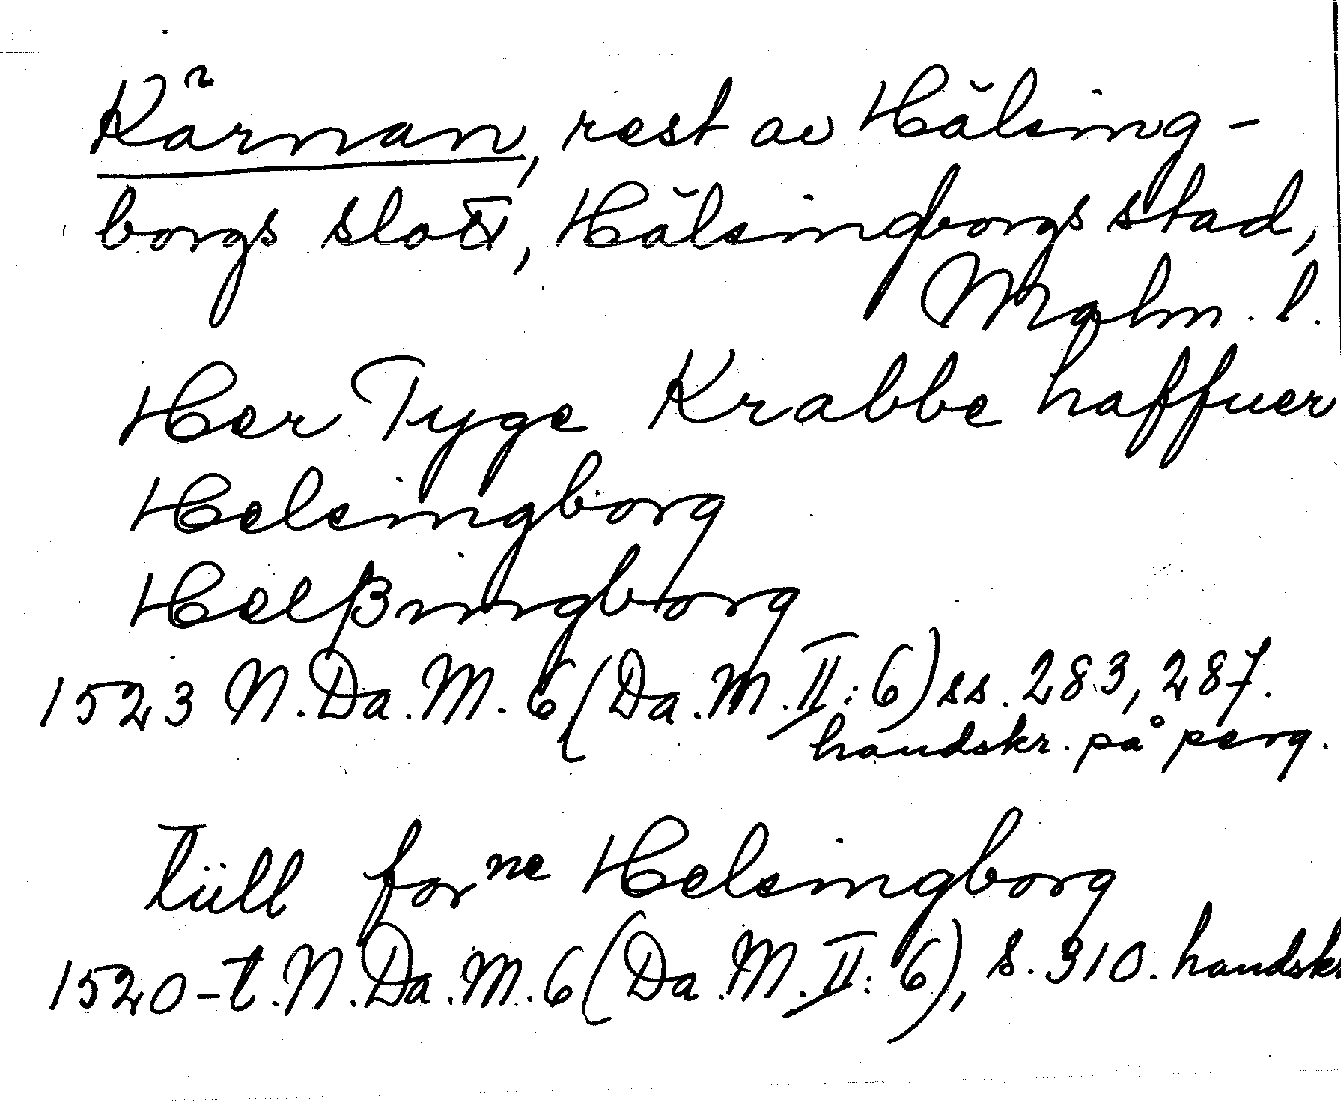 Kärnan, rest av Hälsing-
borgs slott, Hälsingborgs stad,
Malm. l.
Her Tyge Krabbe haffuer
Helsingborg
Helßingborg
1523 N.Da.M.6(Da.M.II:6) ss. 283, 287.
handskr. på perg.
tüll forne Helsingborg
1520-t.N.Da.M.6(Da.M.II:6), s. 310. handskr